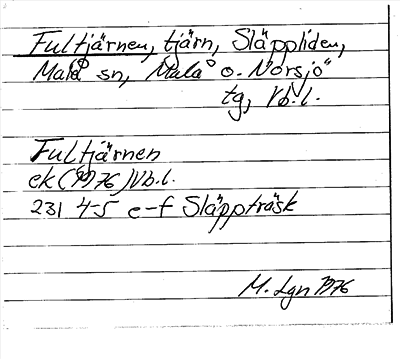 Fultjärnen, tjärn, Släppliden,
Malå sn, Malå o. Norsjö
tg, Vb.l.
Fultjärnen
ek (1976) Vb.l.
231 4-5 e-f Släppträsk
M. Lgn 1976